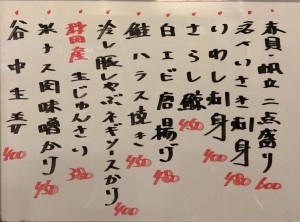 赤貝・帆立二点盛り 600
活〆いさき刺身 480
いわし刺身 400
さらし鯨 450
白エビ唐揚げ 480
鮭ハラス焼き 450
冷し豚しゃぶネギソースかけ 400
秋田産生じゅんさい 380
米ナス肉味噌かけ 450
谷中生姜 400